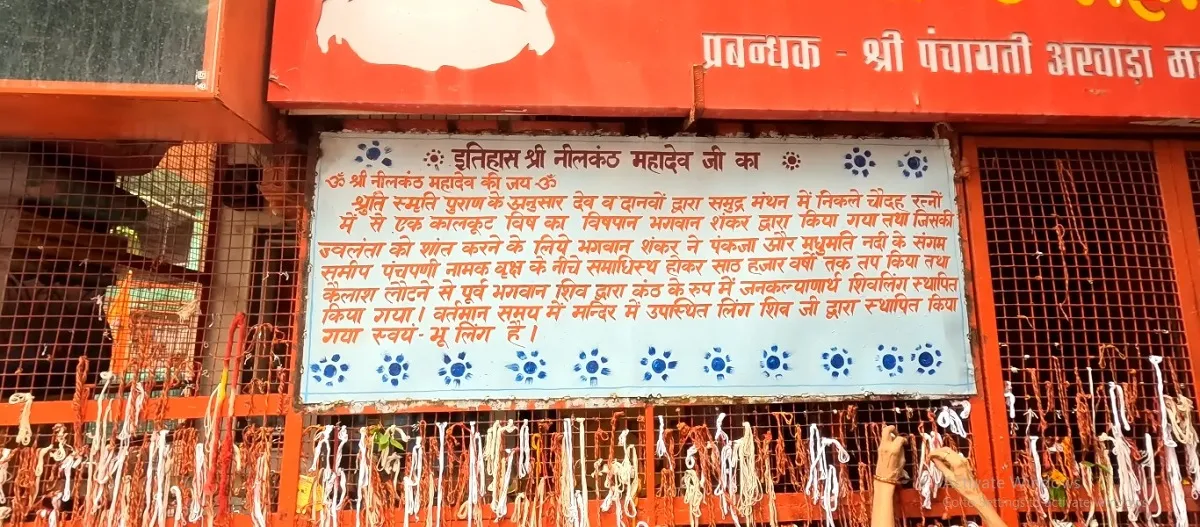 प्रबन्धक - श्री पंचायती अखाड़ा
इतिहास श्री नीलकंठ महादेव जी का
ॐ श्री नीलकंठ महादेव की जय ॐ
श्रुति स्मृति पुराण के अनुसार देव व दानवों द्वारा समुद्र मंथन में निकले चौदह रत्नों
में से एक कालकूट विष का विषपान भगवान शंकर द्वारा किया गया तथा जिसकी
ज्वलंता को शांत करने के लिये भगवान शंकर ने पंकजा और मधुमति नदी के संगम
समीप पंचपणी नामक वृक्ष के नीचे समाधिस्थ होकर साठ हजार वर्षों तक तप किया तथा
कैलाश लौटने से पूर्व भगवान शिव द्वारा कंठ के रुप में जनकल्याणार्थ शिवलिंग स्थापित
किया गया। वर्तमान समय में मन्दिर में उपस्थित लिंग शिव जी द्वारा स्थापित किया
गया स्वयं-भू लिंग हैं।
Activate Windows
Go to Settings to activate Windows.